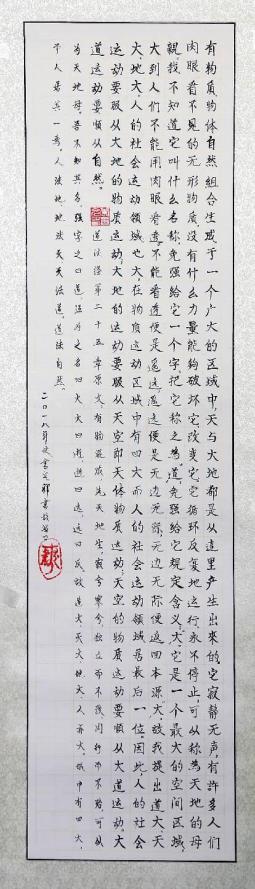 有物质物体自然组合生成于一个广大的区域中，天与大地都是从这里产生出来的，它寂静无声，有许多人们
肉眼看不见的无形物质没有什么力量能够破坏它改变它，它循环反复地运行永不停止，可以称为天地的母
親。我不知道它叫什么名称，勉强给它一个字，把它称之为道，勉强给它规定含义，大，它是一个最大的空间区域，
大到人们不能用肉眼看透，不能看透便是遥远，遥远便是无边无际，无边无际便返回本源。大，故我提出道大、天
大、地大、人的社会运动领域也大，在物质运动区域中有四大，而人的社会运动领域居最后一位。因此，人的社会
运动要服从大地的物质运动，大地的物质运动要服从天空即天体物质运动，天空的物质运动要顺从大道运动。大
道运动要顺从自然。
道法经第二十五章原文：有物混成，先天地生，寂兮寥兮，独立而不改，周行而不殆，可以
为天地母。吾不知其名，强字之曰道，强为之名曰大，大曰逝，逝曰远，远曰反。故道大，天大，地大，人亦大。域中有四大，
而人居其一焉。人法地，地法天，天法道，道法自然。
二〇一八年